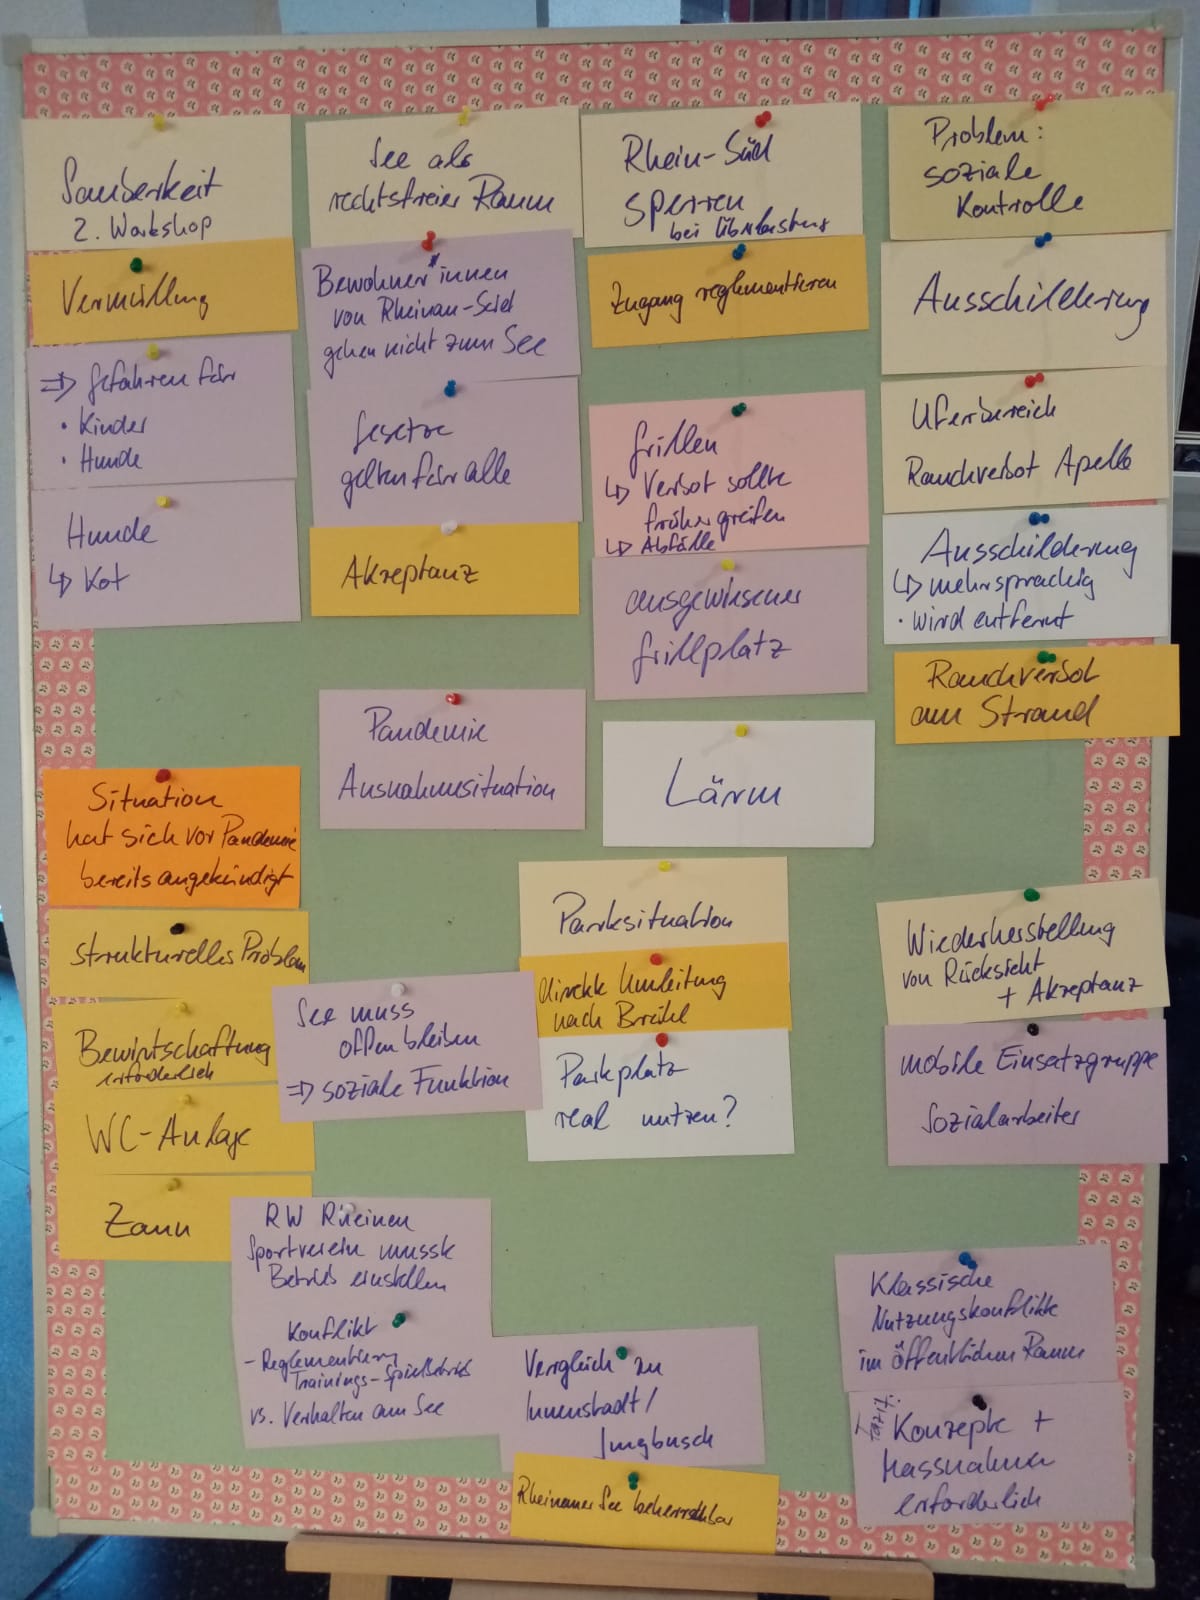 Sauberkeit
2. Workshop
Vermüllung
=> Gefahren für
• Kinder
• Hunde
Hunde
↳ Kot
See als
rechtsfreier Raum
Bewohner*innen
von Rheinau-Süd
gehen nicht zum See
Gesetze
gelten für alle
Akzeptanz
Rhein-Süd
sperren
bei Überlastung
Zugang reglementieren
Grillen
↳ Verbot sollte
früher greifen
↳ Abfälle
ausgewiesener
Grillplatz
Problem:
soziale
Kontrolle
Ausschilderung
Uferbereich
Rauchverbot Apelle
Ausschilderung
↳ mehrsprachig
• wird entfernt
Rauchverbot
am Strand
Pandemie
Ausnahmesituation
Lärm
Situation
hat sich vor Pandemie
bereits angekündigt
strukturelles Problem
Bewirtschaftung
erforderlich
WC-Anlage
Zaun
See muss
offen bleiben
=> soziale Funktion
Parksituation
direkte Umleitung
nach Brühl
Parkplatz
real nutzen?
Wiederherstellung
von Rücksicht
+ Akzeptanz
mobile Einsatzgruppe
Sozialarbeiter
RW Rheinau
Sportverein musste
Betrieb einstellen
Konflikt
- Reglementierung
Trainings-Spielbetrieb
vs. Verhalten am See
Vergleich zu
Innenstadt/
Jungbusch
Rheinauer See beherrschbar
Klassische
Nutzungskonflikte
im öffentlichen Raum
Fazit:
Konzepte +
Massnahmen
erforderlich